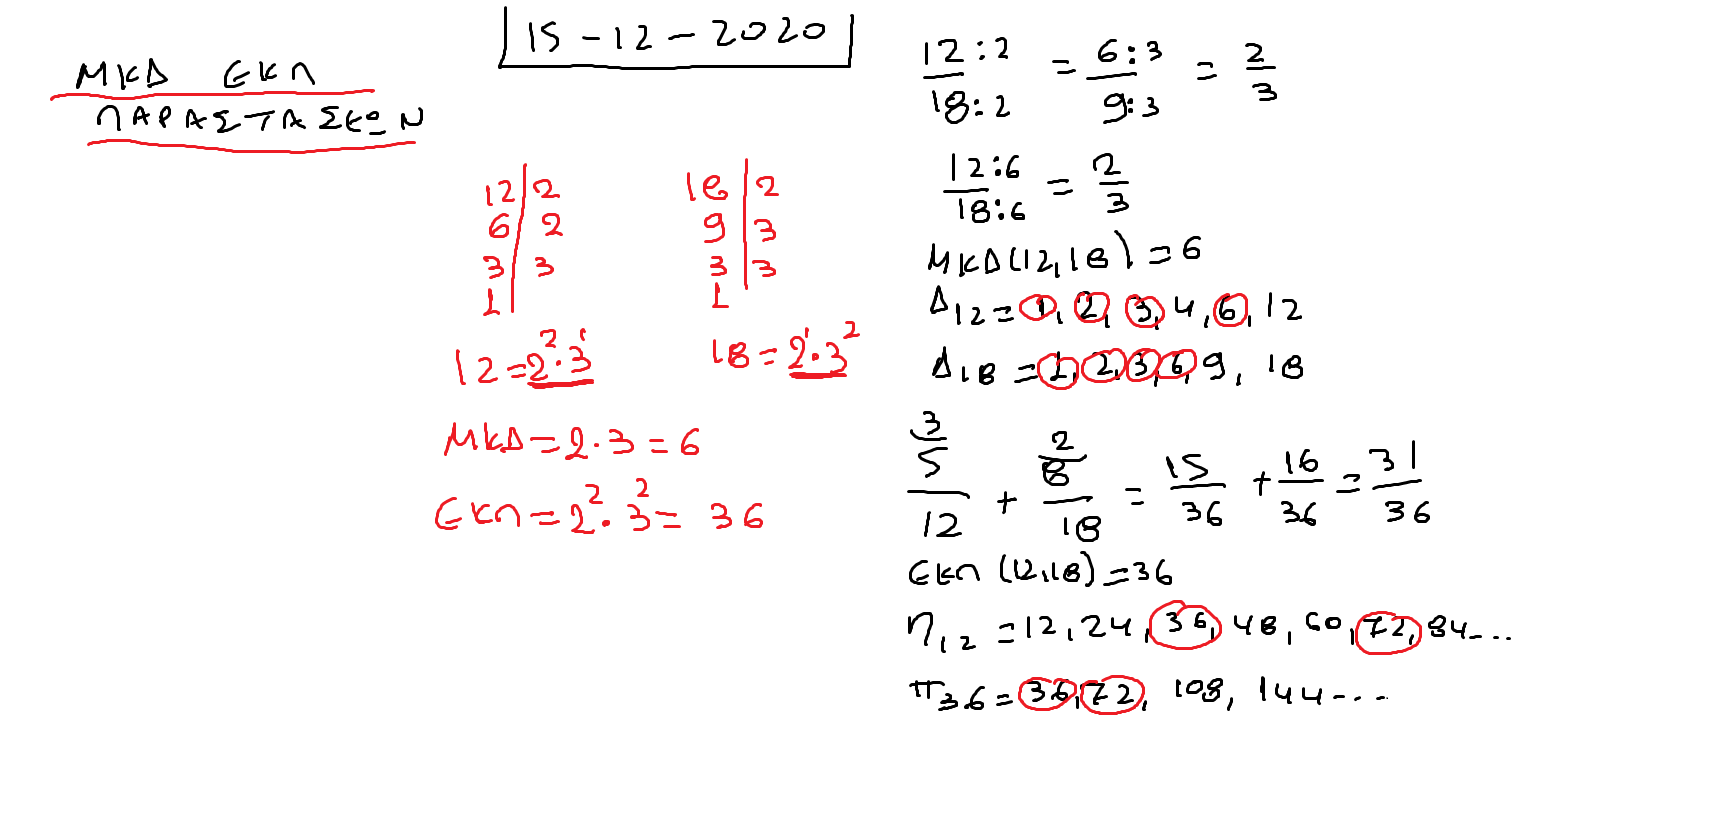 15-12-2020
ΜΚΔ ΕΚΠ
ΠΑΡΑΣΤΑΣΕΩΝ
12|2 18|2
6|2 9|3
3|3 3|3
1 1
12=2²·3¹ 18=2¹·3²
ΜΚΔ=2·3=6
ΕΚΠ=2²·3²=36
12:2/18:2 = 6:3/9:3 = 2/3
12:6/18:6 = 2/3
ΜΚΔ(12,18)=6
Δ12=1,2,3,4,6,12
Δ18=1,2,3,6,9,18
3 2
5/12 + 8/18 = 15/36 + 16/36 = 31/36
ΕΚΠ(12,18)=36
Π12=12,24,36,48,60,72,84...
π36=36,72,108,144...